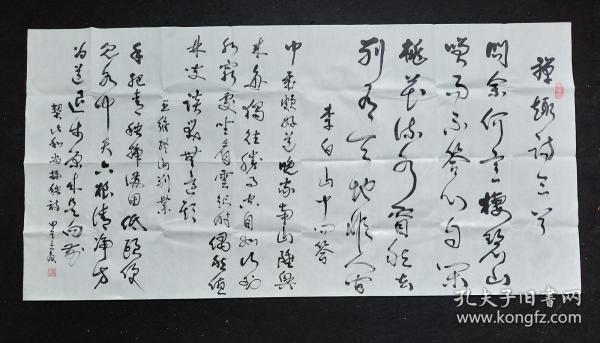 禅趣诗三首
问余何意栖碧山
笑而不答心自闲
桃花流水窅然去
别有天地非人间
李白山中问答
中岁颇好道晚家南山陲兴
来每独往胜事空自知行到
水穷处坐看云起时偶然值
林叟谈笑无还期
王维终南别业
手把青秧插满田低头便
见水中天六根清净方
为道退步原来是向前
契此和尚插秧诗
孔夫子旧书网
www.kongfz.com